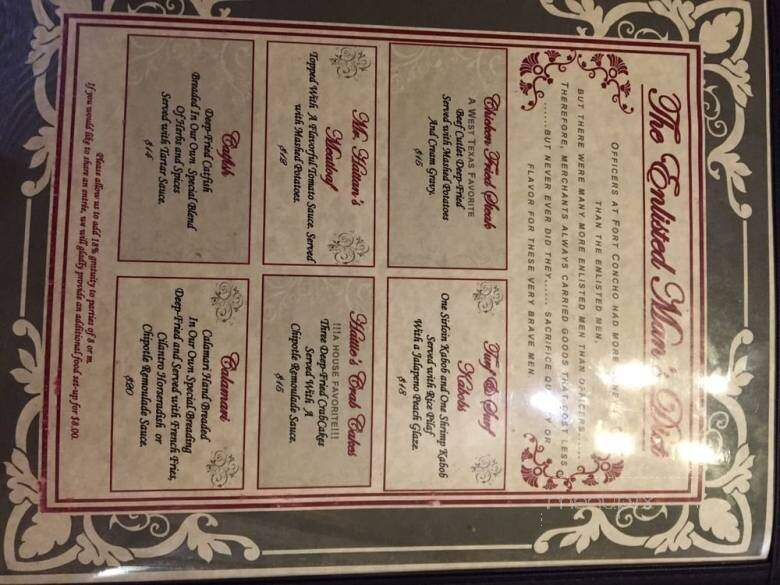 The Enlisted Man's Diet
OFFICERS AT FORT CONCHO HAD MORE
THAN THE ENLISTED MEN.
BUT THERE WERE MANY MORE ENLISTED MEN THAN OFFICERS......
THEREFORE, MERCHANTS ALWAYS CARRIED GOODS THAT COST LESS
......BUT NEVER EVER DID THEY...... SACRIFICE QUALITY OR
FLAVOR FOR THESE VERY BRAVE MEN
Chicken Fried Steak
A WEST TEXAS FAVORITE
Beef Cutlet Deep-Fried
Served with Mashed Potatoes
And Cream Gravy.
$16
Turf & Surf
Kabobs
One Sirloin Kabob and One Shrimp Kabob
Served with Rice Pilaf
With a Jalapeno Peach Glaze.
$18
Meatloaf
Topped With A Flavorful Tomato Sauce. Served
with Mashed Potatoes.
Crab Cakes
!!!A HOUSE FAVORITE!!!
Three Deep-Fried CrabCakes
Served With A
Chipotle Remoulade Sauce.
$16
Catfish
Deep-Fried Catfish
Breaded In Our Own Special Blend
Of Herbs and Spices
Served with Tartar Sauce.
$14
Calamari
Calamari Hand Breaded
In Our Own Special Breading
Deep-Fried and Served with French Fries,
Cilantro Horseradish or
Chipotle Remoulade Sauce.
$20
Please allow us to add 18% gratuity to parties of 8 or m.
If you would like to share an entrée, we will gladly provide an additional food set-up for $8.00.